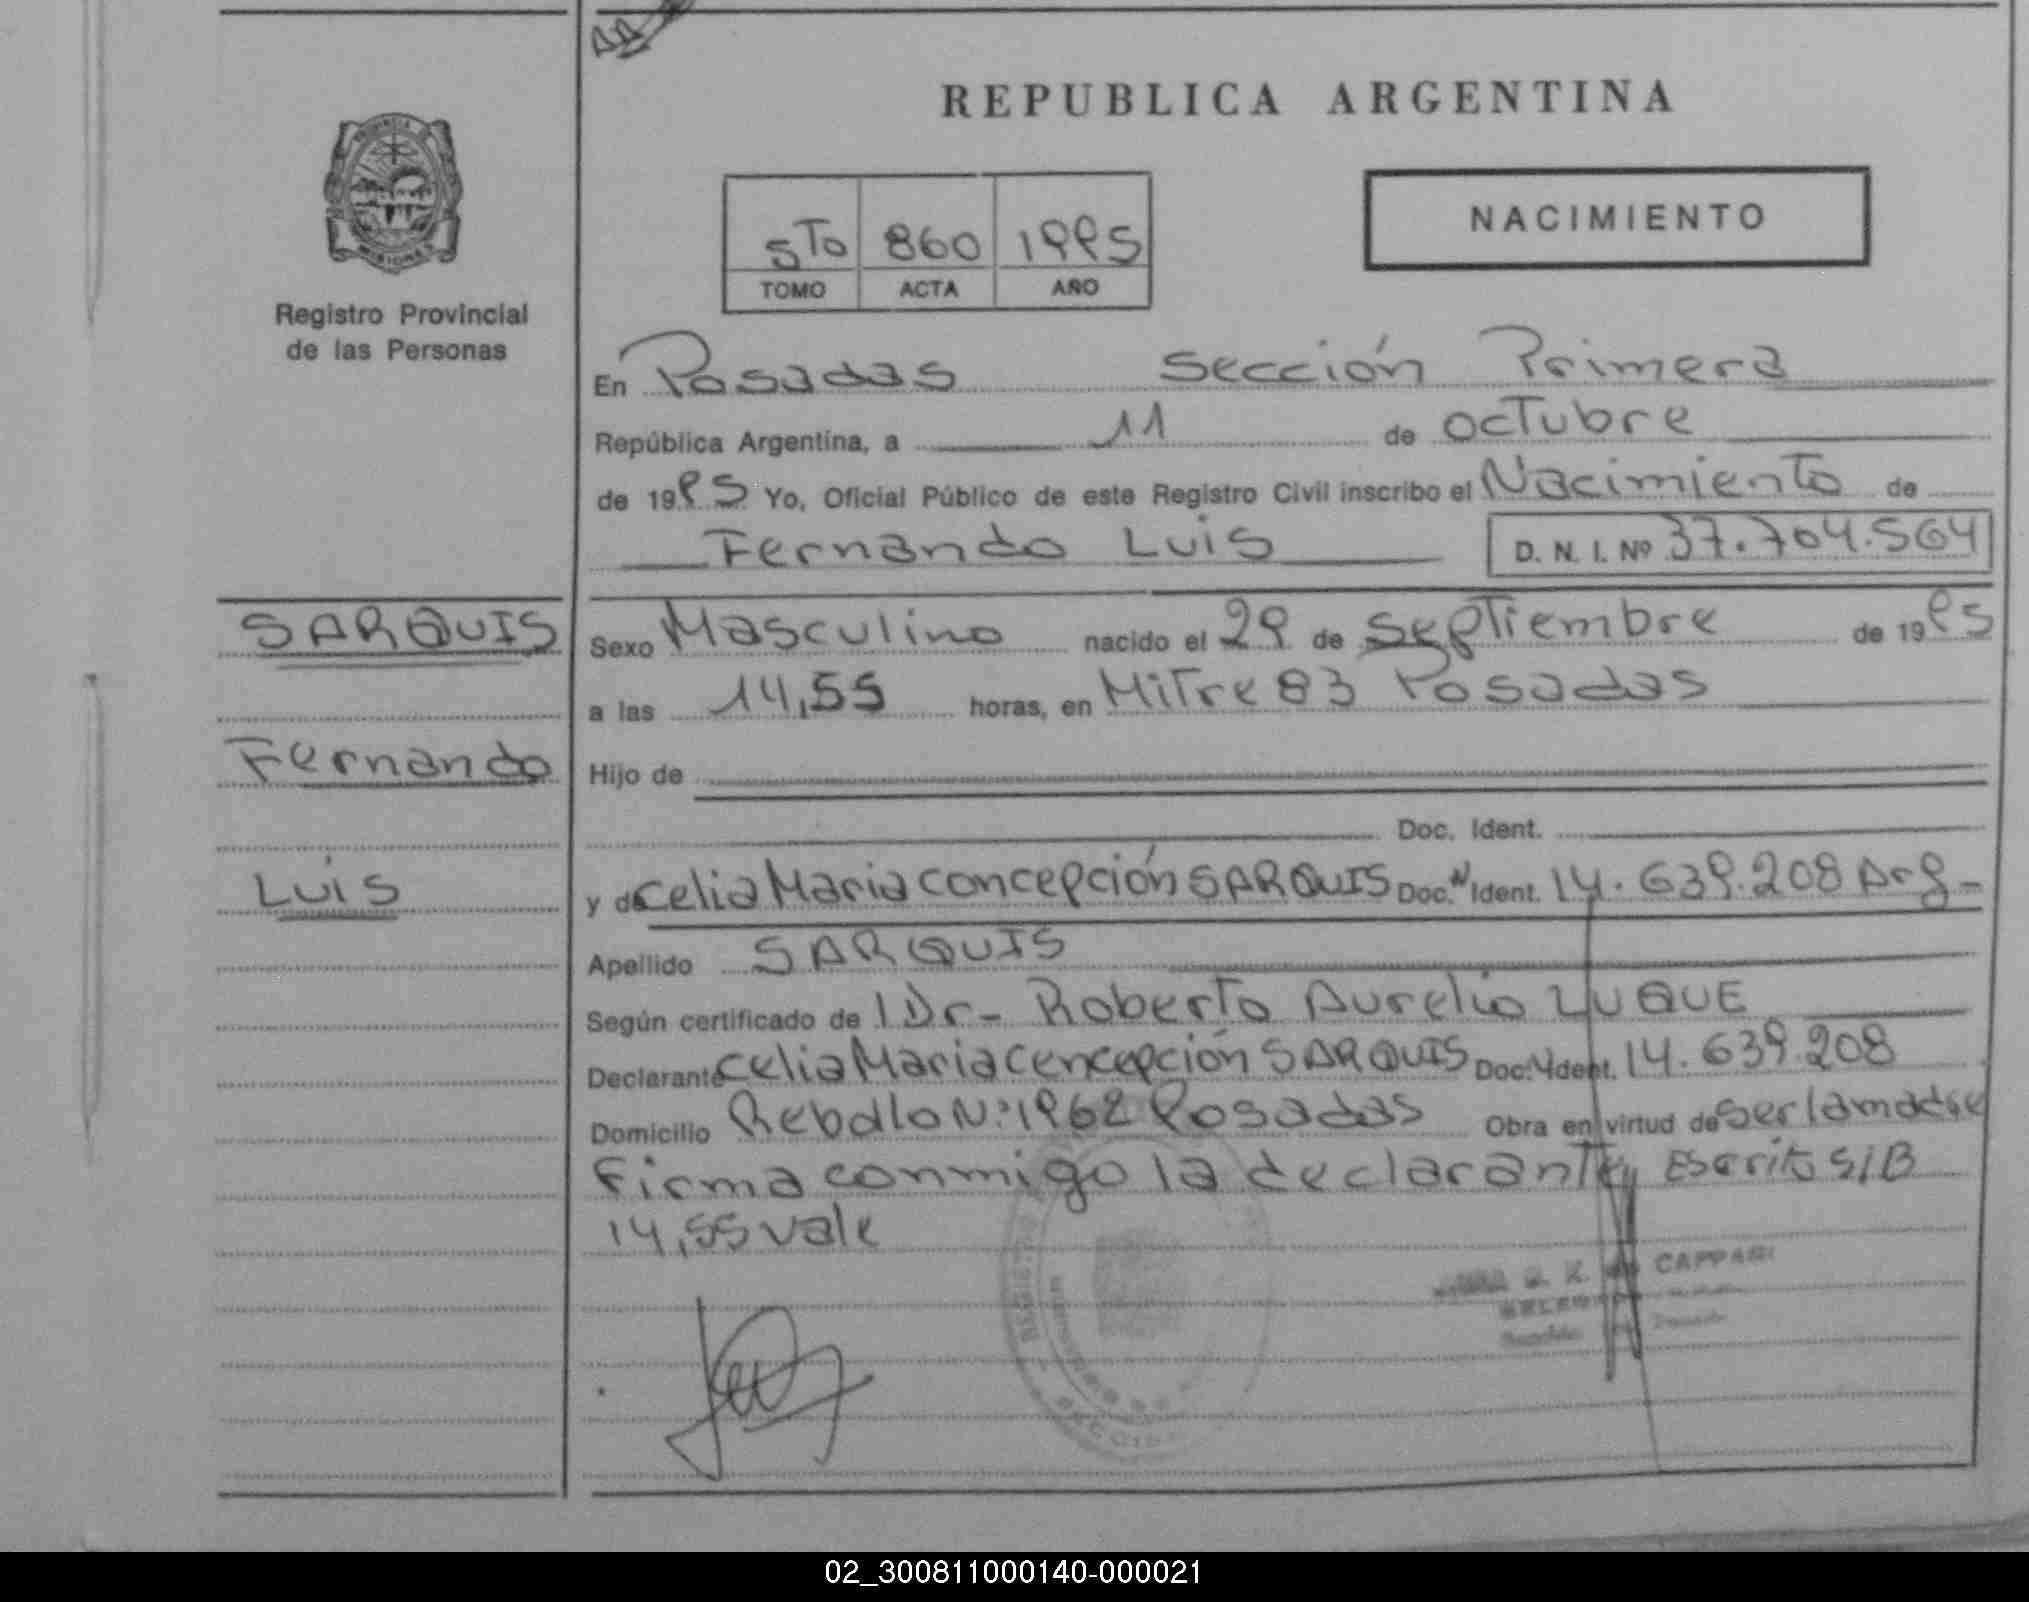 REPUBLICA ARGENTINA
PROVINCIA DE MISIONES
Registro Provincial
de las Personas
NACIMIENTO
5To 860 1995
TOMO ACTA AÑO
En Posadas Sección Primera
República Argentina, a 11 de octubre
de 1995 Yo, Oficial Público de este Registro Civil inscribo el Nacimiento de
Fernando Luis D. N. I. Nº 37.704.564
SARQUIS
Sexo Masculino nacido el 29 de Septiembre de 1995
a las 14,55 horas, en Mitre 83 Posadas
Fernando
Hijo de
Doc. Ident.
Luis
y de Celia Maria Concepción SARQUIS Doc. Ident. 14.639.208 Arg-
Apellido SARQUIS
Según certificado de l Dr- Roberto Aurelio LUQUE
Declarante Celia Maria Cencepción SARQUIS Doc. Ident. 14.639.208
Domicilio Rebollo Nº 1962 Posadas Obra en virtud de ser la madre
Firma conmigo la declarante Escrito S/B
14,55 vale
CAPPARI
02_300811000140-000021